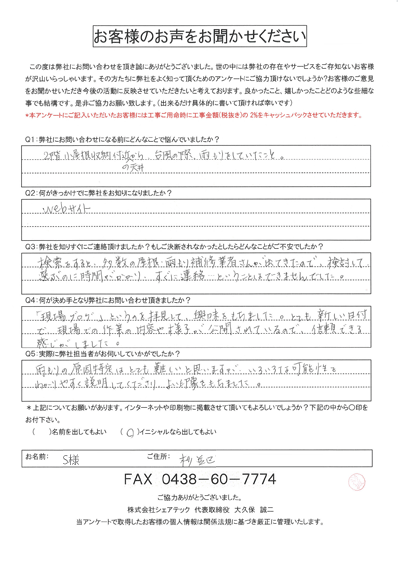 お客様のお声をお聞かせください
この度は弊社にお問い合わせを頂き誠にありがとうございました。世の中には弊社の存在やサービスをご存知ないお客様
が沢山いらっしゃいます。その方たちに弊社をよく知って頂くためのアンケートにご協力頂けないでしょうか?お客様のご意見
をお聞かせいただき今後の活動に反映させていただきたいと考えております。良かったこと、嬉しかったことどのような些細な
事でも結構です。是非ご協力お願い致します。(出来るだけ具体的に書いて頂ければ幸いです)
*本アンケートにご記入いただいたお客様には工事ご用命時に工事金額(税抜き)の2%をキャッシュバックさせていただきます。
Q1:弊社にお問い合わせになる前にどんなことで悩んでいましたか?
2階小屋根収納付近から、台風の際、雨もりをしていたこと。
の天井
Q2:何がきっかけでに弊社をお知りになりましたか?
Webサイト
Q3:弊社を知りすぐにご連絡頂けましたか?もしご決断されなかったとしたらどんなことがご不安でしたか?
検索をすると、多数の屋根・雨もり補修業者さんが出てきたので、検討して
選ぶのに時間がかかり、すぐに連絡ということはできませんでした。
Q4:何が決め手となり弊社にお問い合わせ頂きましたか?
「現場ブログ」というのを拝見して、興味をもちました。とても新しい日付
で、現場での作業の内容や様子が公開されているので、信頼できる
感じがしました。
Q5:実際に弊社担当者がお伺いしていかがでしたか?
雨もりの原因特定はとても難しいと思いますが、いろいろな可能性を
わかりやすく説明してくださり、よい印象をもちました。
*上記についてお願いがあります。インターネットや印刷物に掲載させて頂いてもよろしいでしょうか?下記の中から〇印をお
お付下さい。
( )名前を出してもよい (〇)イニシャルなら出してもよい
お名前: S様 ご住所:
FAX 0438-60-7774
ご協力ありがとうございました。
株式会社シェアテック 代表取締役 大久保 誠二
当アンケートで取得したお客様の個人情報は関係法規に基づき厳正に管理いたします。